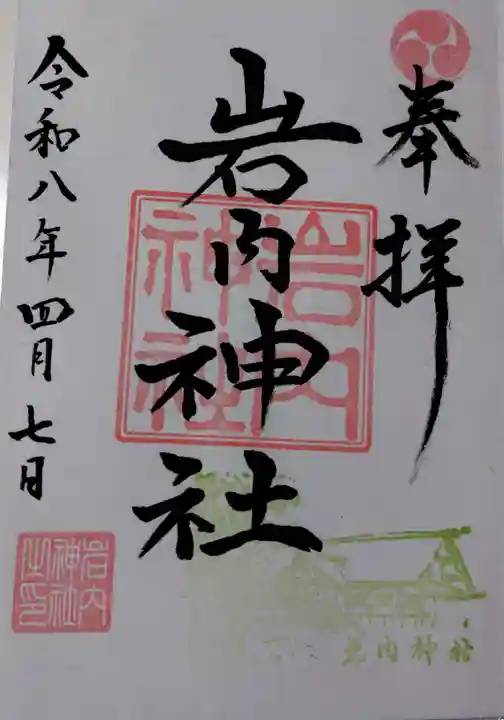 奉拝
岩内神社
岩内神社
令和八年四月七日
岩内神社之印
内神社